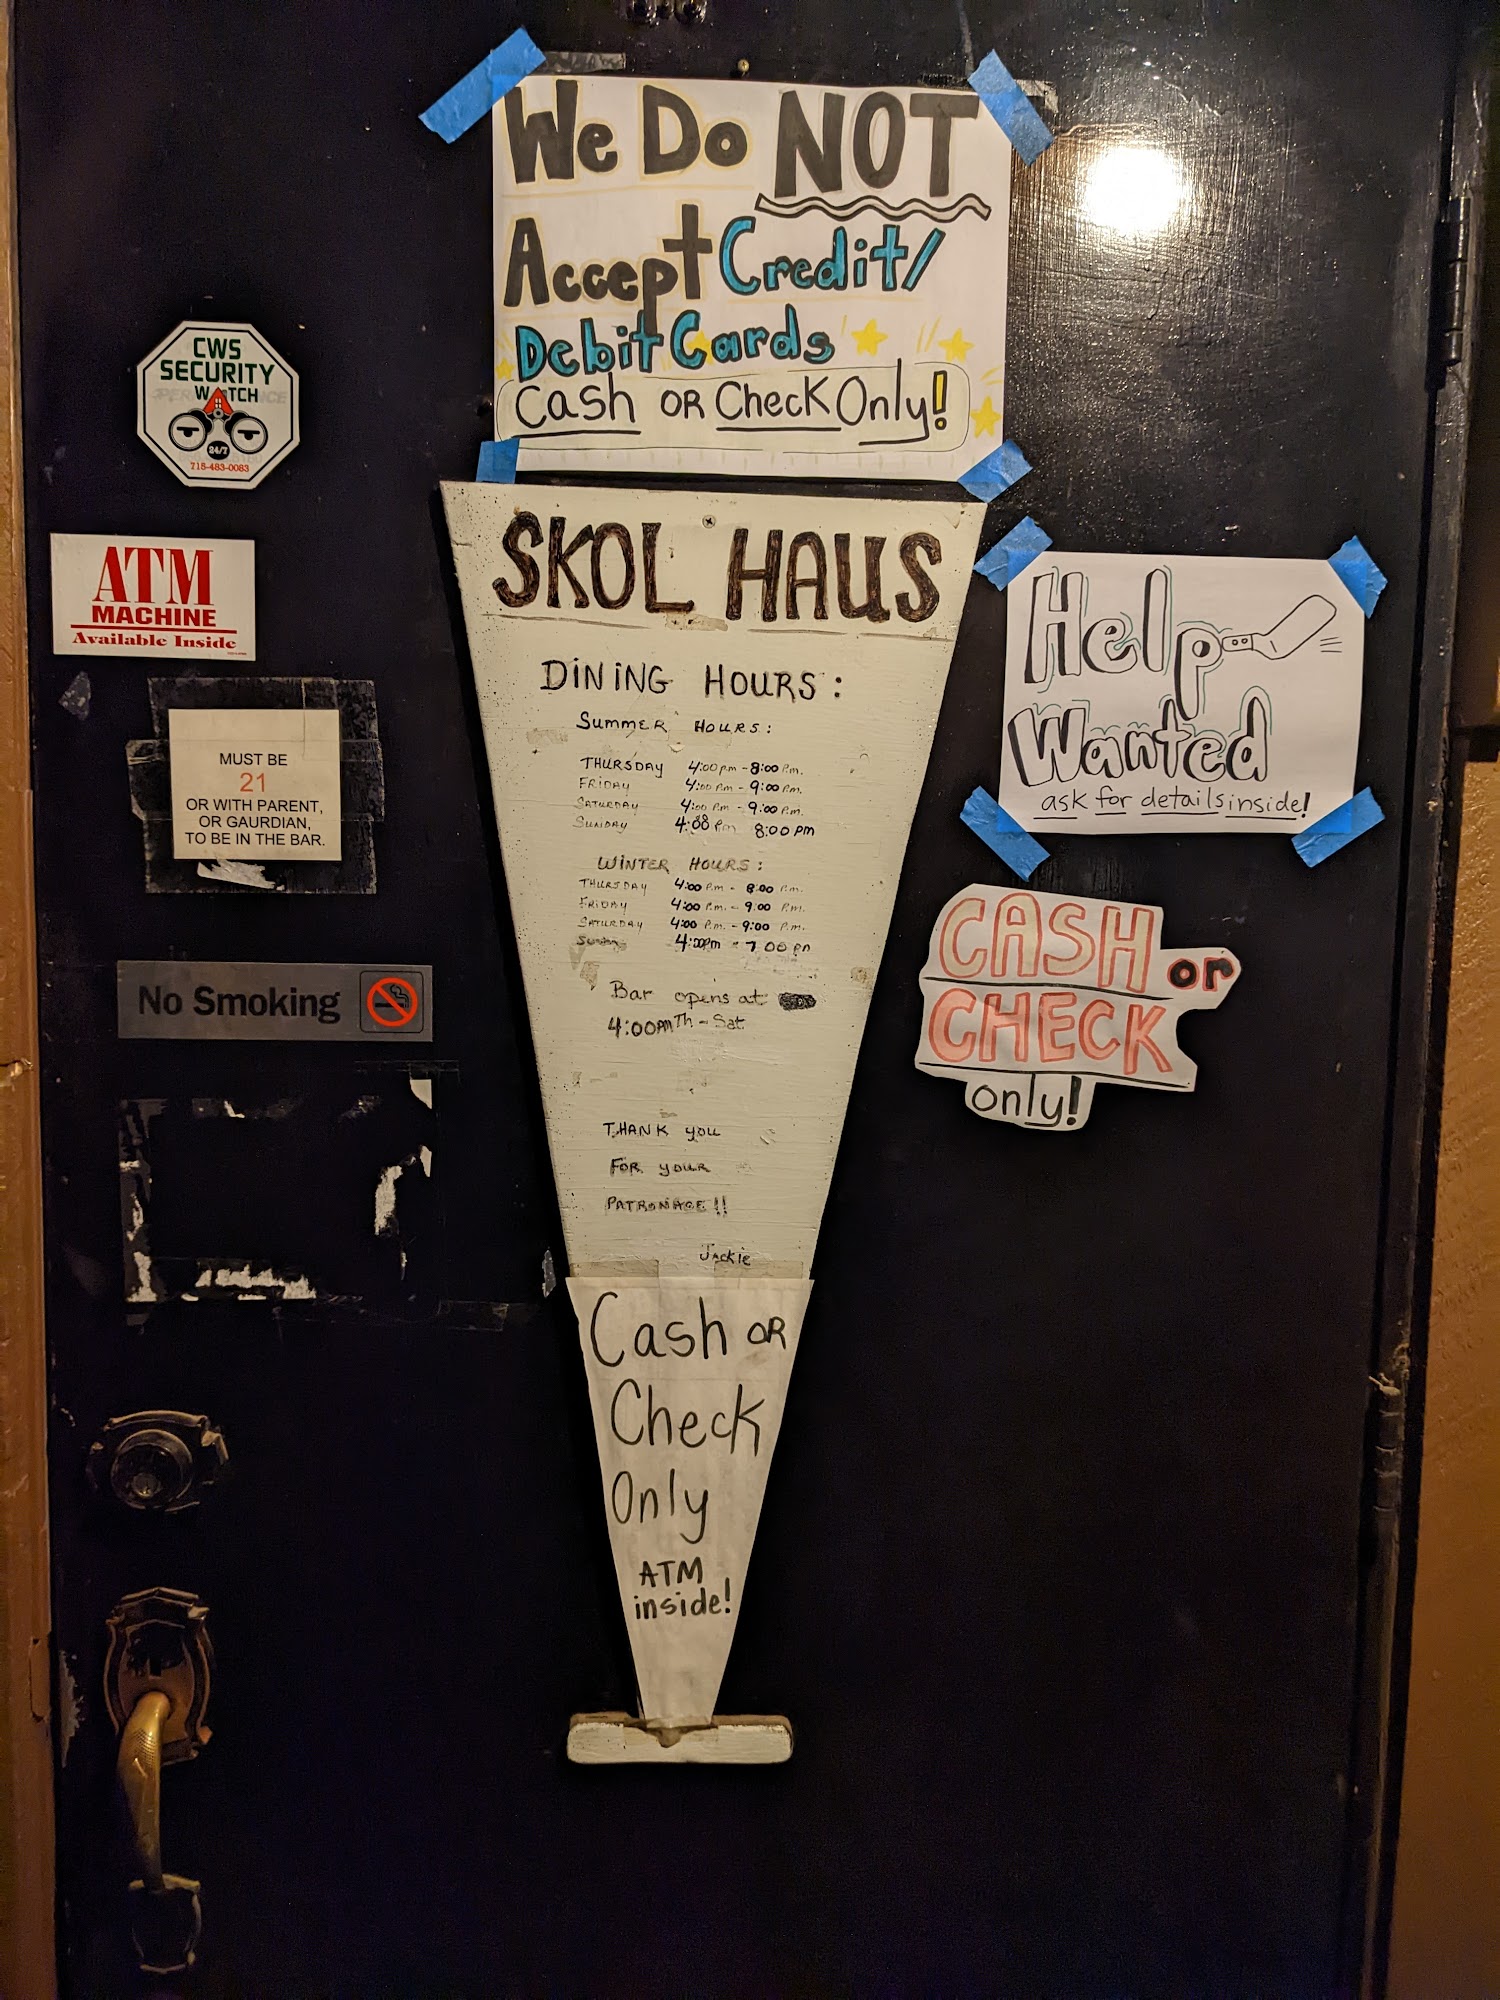 We Do NOT
Accept Credit/
Debit Cards
Cash OR Check Only!
CWS
SECURITY
WATCH
24/7
715-483-0083
ATM
MACHINE
Available Inside
MUST BE
21
OR WITH PARENT,
OR GAURDIAN,
TO BE IN THE BAR.
No Smoking
SKOL HAUS
DINING HOURS:
SUMMER HOURS:
THURSDAY 4:00 pm - 8:00 P.m.
FRIDAY 4:00 P.m - 9:00 P.m.
SATURDAY 4:00 P.m - 9:00 P.m.
SUNDAY 4:00 Pm 8:00 PM
WINTER HOURS:
THURSDAY 4:00 P.m. - 8:00 P.m.
FRIDAY 4:00 P.m. - 9:00 P.m.
SATURDAY 4:00 P.m. - 9:00 P.m.
SUNDAY 4:00pm - 7:00 pm
Bar opens at
4:00PM Th - Sat
THANK YOU
FOR YOUR
PATRONAGE!!
Jackie
Cash OR
Check
Only
ATM
inside!
Help
Wanted
ask for details inside!
CASH or
CHECK
only!